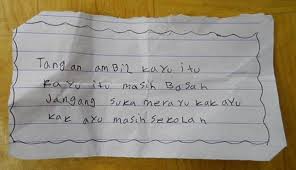 Tangan amBiL kayu itu
kayu itu masih Basah
Jangang suka merayu kak ayu
kak ayu masih sekolah